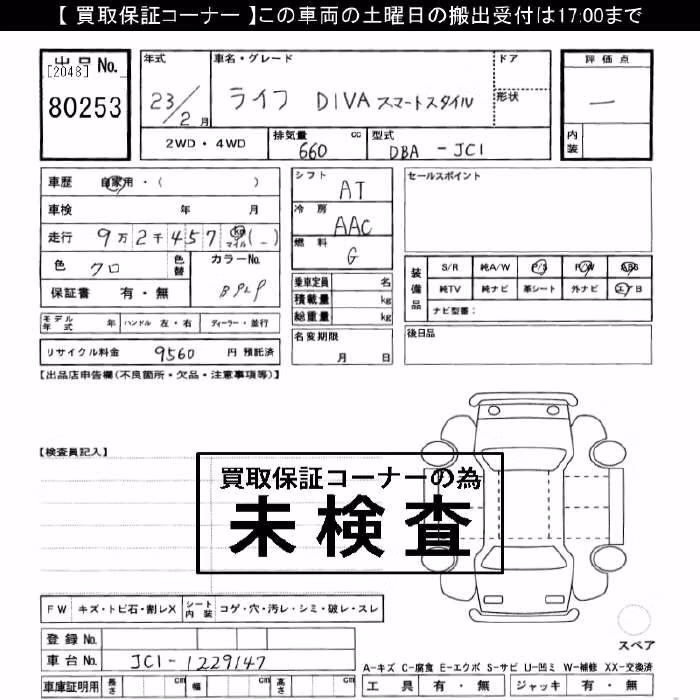 【 買取保証コーナー 】この車両の土曜日の搬出受付は17:00まで
出品 No.
[2048]
80253
年式
23/2月
車名・グレード
ライフ DIVA スマートスタイル
ドア
形状
評価点
一
内装
2WD・4WD
排気量 cc
660
型式
DBA - JC1
車歴 自家用・( )
車検 年 月
走行 9万2千457 km マイル (-)
色 クロ
色替
カラーNo.
保証書 有・無
シフト AT
冷房 AAC
燃料 G
乗車定員 名
積載量 kg
総重量 kg
セールスポイント
装備品
S/R 純A/W P/S P/W ABS
純TV 純ナビ 革シート 外ナビ エアB
ナビ型番：
モデル年式 年 ハンドル 左・右 ディーラー・並行
名変期限
月 日
後日品
リサイクル料金 9560 円 預託済
【出品店申告欄(不良箇所・欠品・注意事項等)】
【検査員記入】
買取保証コーナーの為
未検査
FW キズ・トビ石・割レX シート内装 コゲ・穴・汚レ・シミ・破レ・スレ
登録 No.
車台 No. JC1-1229147
車庫証明用 長さ cm 幅 cm 高さ cm
スペア
A-キズ C-腐食 E-エクボ S-サビ U-凹ミ W-補修 XX-交換済
工具 有・無 ジャッキ 有・無